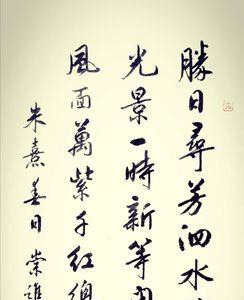 勝日尋芳泗水
光景一時新等
風面萬紫千紅總
朱熹春日崇